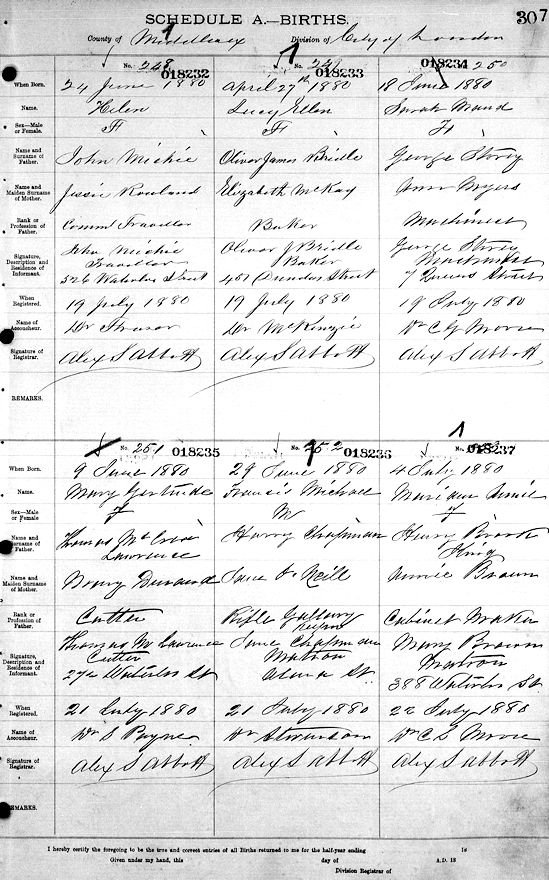 307
SCHEDULE A.—BIRTHS.
County of Middlesex Division of City of London
No. 248 018232 No. 249 018233 018234 250
When Born. 24 June 1880 April 27th 1880 18 June 1880
Name. Helen Lucy Ellen Sarah Maud
Sex—Male or Female. F F F
Name and Surname of Father. John Michie Oliver James Bridle George Storey
Name and Maiden Surname of Mother. Jessie Rowland Elizabeth McKay Ann Myers
Rank or Profession of Father. Comml Traveller Baker Machinist
Signature, Description and Residence of Informant. John Michie Oliver J Bridle George Storey
Traveller Baker Machinist
526 Waterloo Street 457 Dundas Street 7 Queens Street
When Registered. 19 July 1880 19 July 1880 19 July 1880
Name of Accoucheur. Dr Fraser Dr McKinzie Dr C G Moore
Signature of Registrar. Alex S Abbott Alex S Abbott Alex S Abbott
REMARKS.
No. 251 018235 No. 252 018236 No. 018237
When Born. 9 June 1880 29 June 1880 4 July 1880
Name. Mary Gertrude Francis Michael Mariam Annie
Sex—Male or Female F M F
Name and Surname of Father. Thomas Mc Harry Chapman Henry Brook
Lawrence King
Name and Maiden Surname of Mother. Durand Jane O Neill Annie Brown
Rank or Profession of Father. Cutter Rifle Gallery Cabinet Maker
Signature, Description and Residence of Informant. Thomas M Lawrence Jane Chapman Mary Brown
Cutter Matron Matron
274 Waterloo St St 388 Waterloo St
When Registered. 21 July 1880 21 July 1880 22 July 1880
Name of Accoucheur. Dr Payne Dr Stevenson Dr C S Moore
Signature of Registrar. Alex S Abbott Alex S Abbott Alex S Abbott
REMARKS.
I hereby certify the foregoing to be the true and correct entries of all Births returned to me for the half-year ending 18
Given under my hand, this day of A.D. 18
Division Registrar of